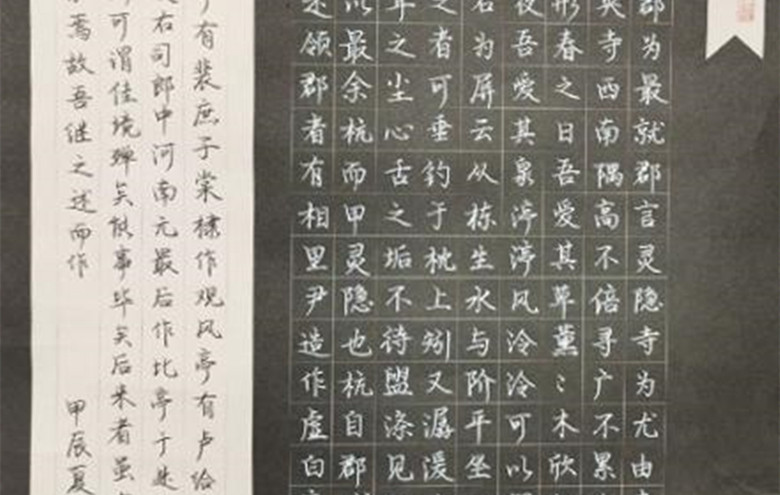 郡为最就郡言灵隐寺为尤由
寺西南隅高不倍寻广不累
形春之日吾爱其草薰ミ木欣
夜吾爱其泉渟渟风泠泠可以
石为屏云从栋生水与阶平坐
之者可垂钓于枕上矧又潺湲
耳之尘心舌之垢不待盟涤见
以最余杭而甲灵隐也杭自郡
领郡者有相里尹造作虚白
有裴庶子棠棣作观风亭有卢给
右司郎中河南元最后作此亭于是
可谓佳境殚矣能事毕矣后来者虽
焉故吾继之述而作
甲辰夏